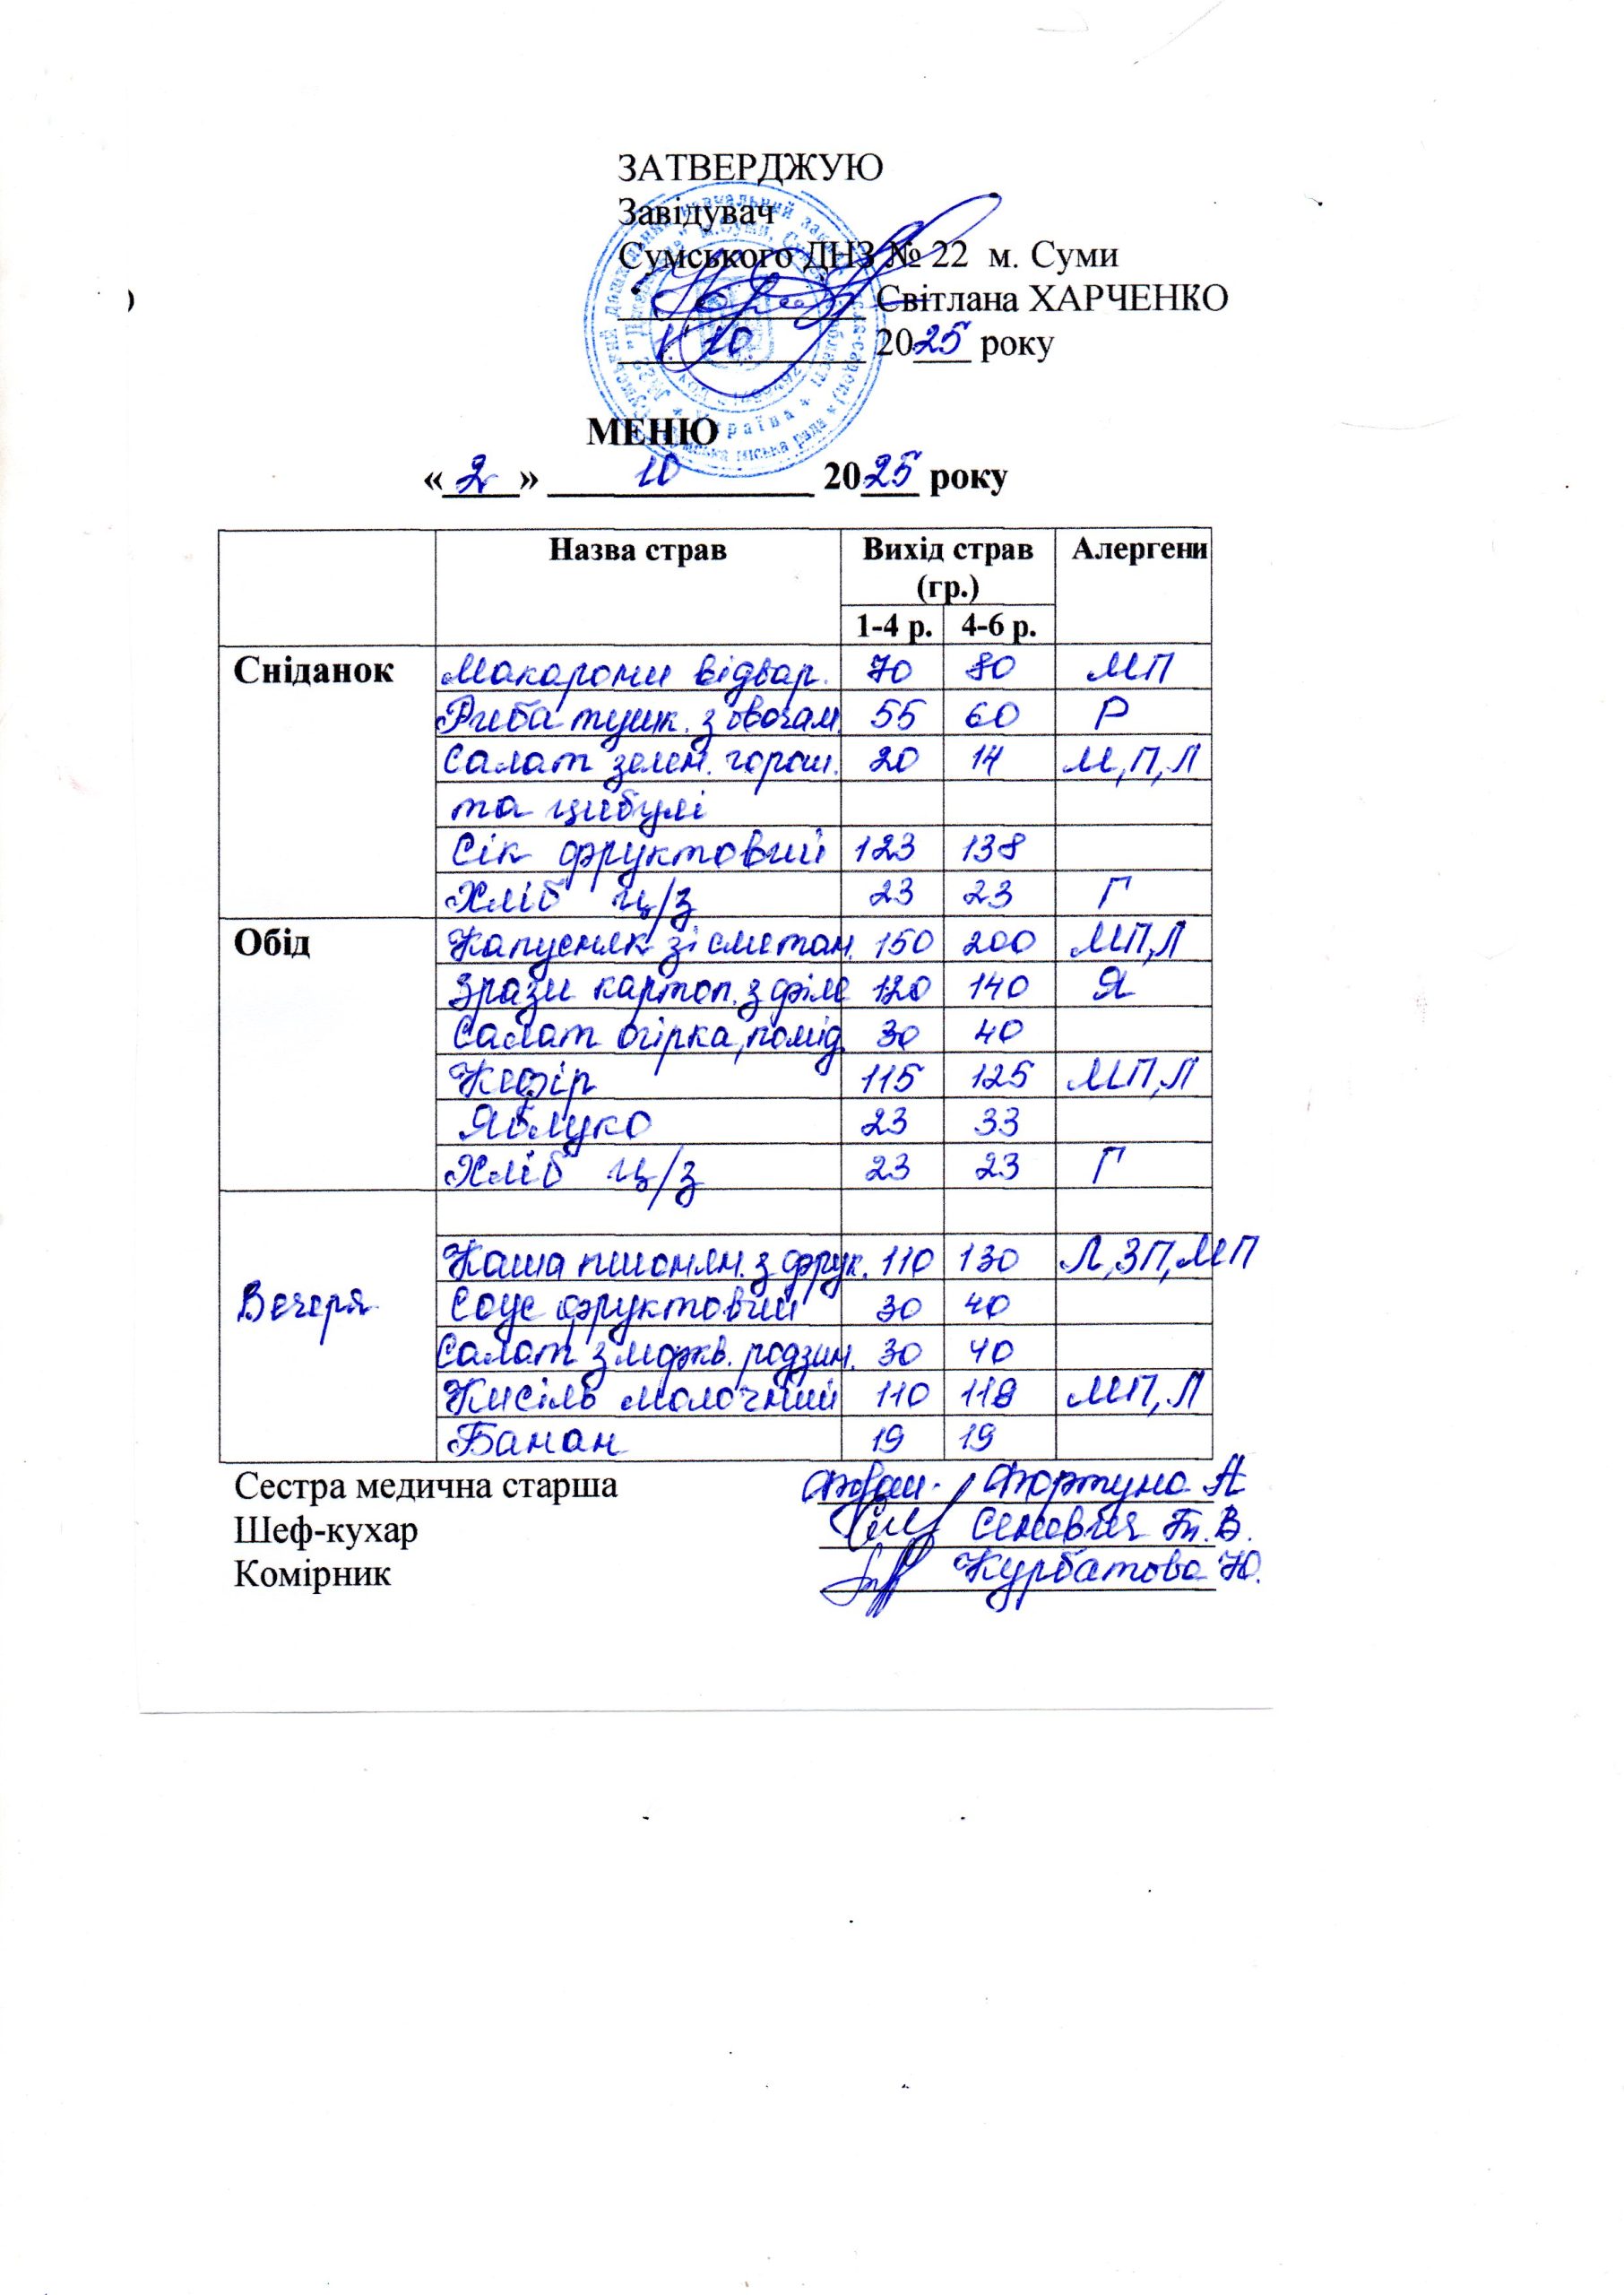 ЗАТВЕРДЖУЮ
Завідувач
Сумського ДНЗ № 22 м. Суми
Світлана ХАРЧЕНКО
1. 10 2025 року
МЕНЮ
«2» 10 2025 року
Назва страв Вихід страв (гр.) Алергени
1-4 р. 4-6 р.
Сніданок Макарони відвар. 70 80 МП
Риба тушк. з овочам. 55 60 Р
Салат зелен. горош. 20 14 М,П,Л
та цибулі
Сік фруктовий 123 138
Хліб ц/з 23 23 Г
Обід Капусняк зі сметан. 150 200 МП,Л
Зрази картоп. з філе 120 140 Я
Салат огірка, помід. 30 40
Кефір 115 125 МП,Л
Яблуко 23 33
Хліб ц/з 23 23 Г
Каша пшонян. з фрук. 110 130 Л,ЗП,МП
Вечеря Соус фруктовий 30 40
Салат з моркв. родзин. 30 40
Кисіль молочний 110 118 МП,Л
Банан 19 19
Сестра медична старша Фортуна А
Шеф-кухар Т.В.
Комірник Курбатова Ю.